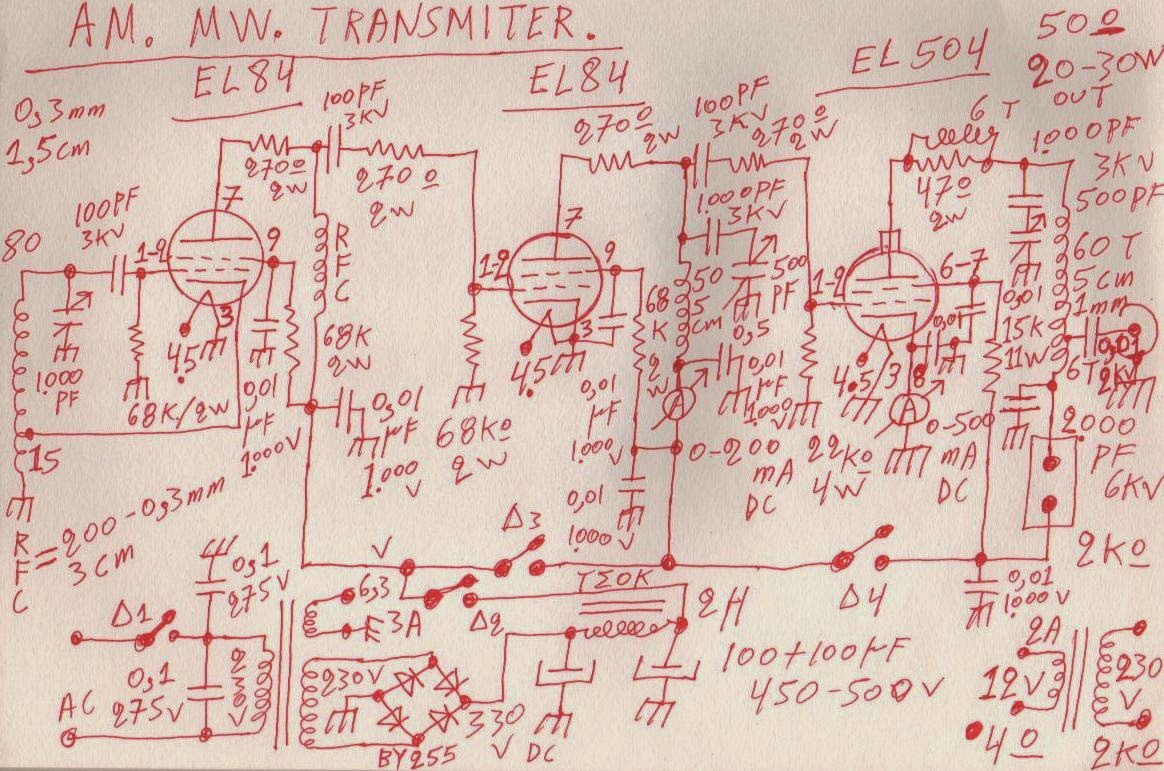 AM. MW. TRANSMITER.
50Ω
20-30W
OUT
EL84
EL84
EL504
0,3mm
1,5cm
100PF
3KV
270Ω
2W
270Ω
2W
7
270Ω
2W
100PF
3KV
270Ω
2W
7
6T
47Ω
2W
1.000PF
3KV
500PF
80
100PF
3KV
1-2
9
3
4.5
RFC
1-2
9
3
4,5
1.000PF
3KV
500
PF
50
5
cm
0,5
1-2
6-7
4.5/3
8
0,01
60T
5cm
1mm
6T
0,01
2KV
1.000
PF
15
68K/2W
0,01
μF
1.000V
68K
2W
0,01
μF
1.000
V
68KΩ
2W
68
K
2
W
0,01
μF
1.000
V
0,01
μF
1.000V
A
0-200
mA
DC
22KΩ
4W
A
0-500
mA
DC
0,01
15K
11W
2.000
PF
6KV
2KΩ
RFC=200-0,3mm
3cm
V
Δ3
0,01
1.000V
Δ4
0,01
1.000V
Δ1
0,1
275V
6,3
3A
Δ2
ΤΣΟΚ
2H
AC
0,1
275V
230V
230V
BY255
330
V
DC
100+100μF
450-500V
2A
12V
4Ω
230
V
2KΩ